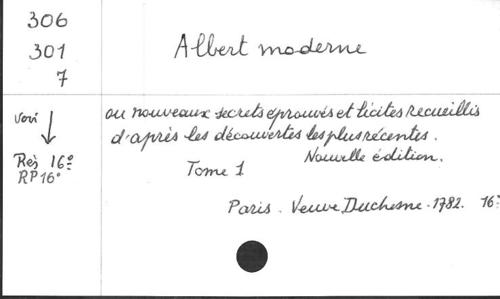 306
301
7
Albert moderne
ou nouveaux secrets éprouvés et licites recueillis
d'après les découvertes les plus récentes.
Nouvelle édition.
Tome 1
Paris. Veuve Duchesne. 1782. 16º
Rés 16º
RP 16º